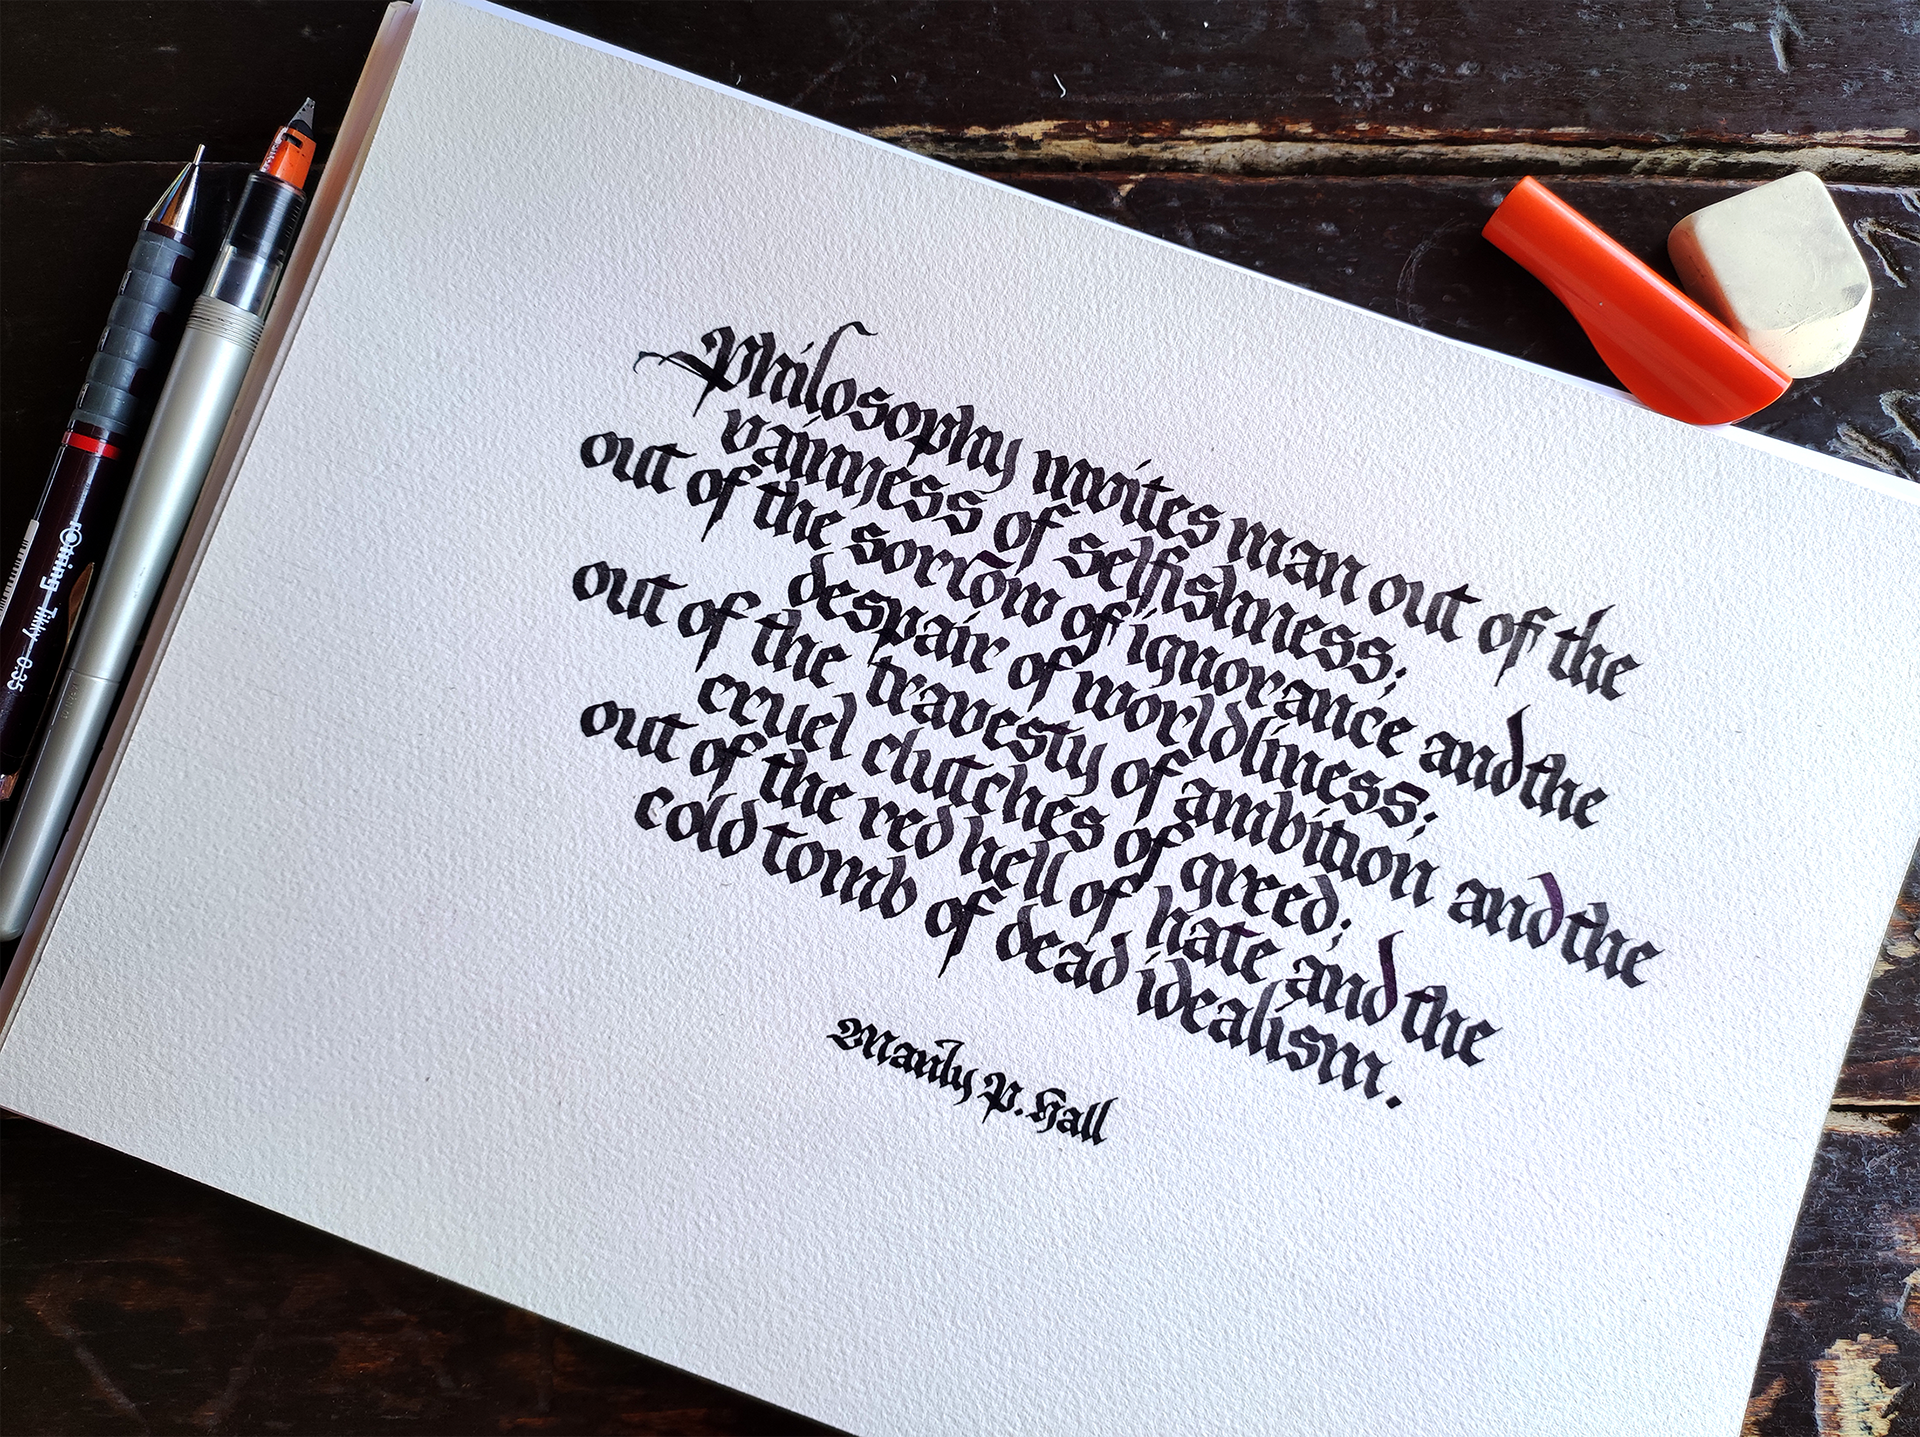 Philosophy invites man out of the
vainness of selfishness;
out of the sorrow of ignorance and the
despair of worldliness;
out of the travesty of ambition and the
cruel clutches of greed;
out of the red hell of hate and the
cold tomb of dead idealism.
Manly P. Hall
rOtring Tikky 0.35